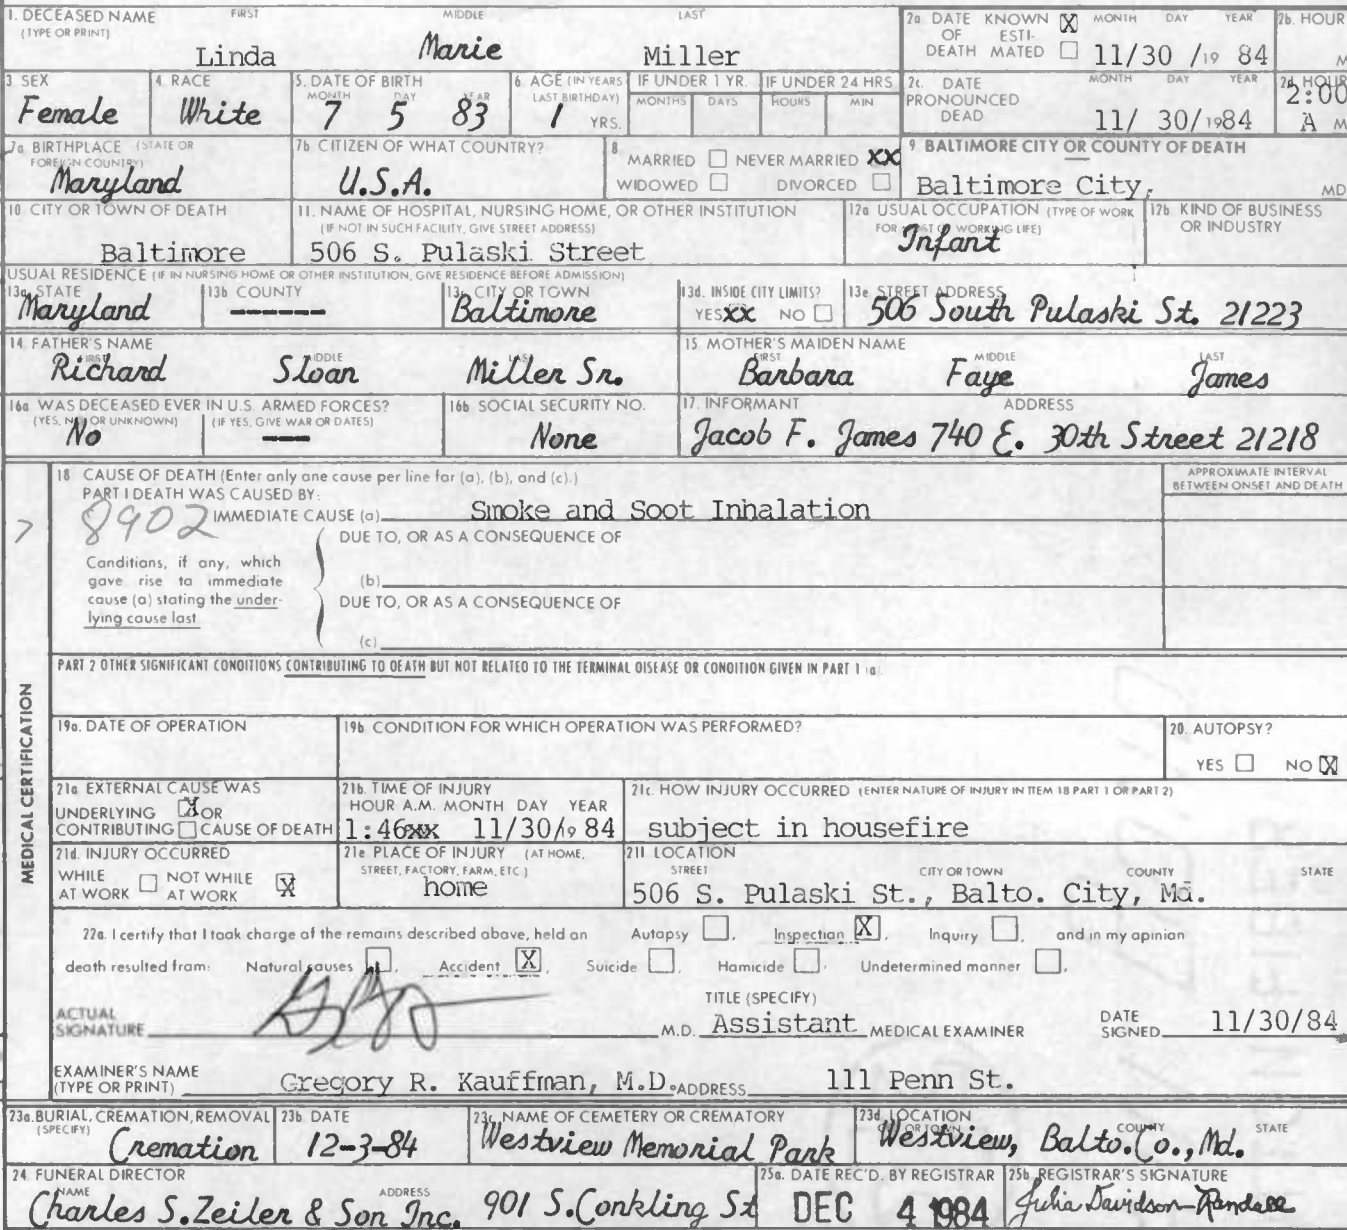 1. DECEASED NAME FIRST MIDDLE LAST
(TYPE OR PRINT)
Linda Marie Miller
2a. DATE KNOWN X MONTH DAY YEAR
OF ESTI-
DEATH MATED
11/30/19 84
2b. HOUR
M
3 SEX
Female
4. RACE
White
5. DATE OF BIRTH
MONTH DAY YEAR
7 5 83
6 AGE (IN YEARS
LAST BIRTHDAY)
1 YRS.
IF UNDER 1 YR.
MONTHS DAYS
IF UNDER 24 HRS
HOURS MIN
2c. DATE MONTH DAY YEAR
PRONOUNCED
DEAD
11/ 30/1984
2d. HOUR
2:00
A M
7a BIRTHPLACE (STATE OR
FOREIGN COUNTRY)
Maryland
7b CITIZEN OF WHAT COUNTRY?
U.S.A.
8
MARRIED NEVER MARRIED XX
WIDOWED DIVORCED
9 BALTIMORE CITY OR COUNTY OF DEATH
Baltimore City, MD
10 CITY OR TOWN OF DEATH
Baltimore
11. NAME OF HOSPITAL, NURSING HOME, OR OTHER INSTITUTION
(IF NOT IN SUCH FACILITY, GIVE STREET ADDRESS)
506 S. Pulaski Street
12a USUAL OCCUPATION (TYPE OF WORK
FOR MOST OF WORKING LIFE)
Infant
12b KIND OF BUSINESS
OR INDUSTRY
USUAL RESIDENCE (IF IN NURSING HOME OR OTHER INSTITUTION, GIVE RESIDENCE BEFORE ADMISSION)
13a. STATE
Maryland
13b COUNTY
------
13c. CITY OR TOWN
Baltimore
13d. INSIDE CITY LIMITS?
YES XX NO
13e STREET ADDRESS
506 South Pulaski St. 21223
14 FATHER'S NAME
FIRST MIDDLE LAST
Richard Sloan Miller Sr.
15 MOTHER'S MAIDEN NAME
FIRST MIDDLE LAST
Barbara Faye James
16a WAS DECEASED EVER IN U.S. ARMED FORCES?
(YES, NO, OR UNKNOWN) (IF YES, GIVE WAR OR DATES)
No ---
16b SOCIAL SECURITY NO.
None
17. INFORMANT ADDRESS
Jacob F. James 740 E. 30th Street 21218
MEDICAL CERTIFICATION
18 CAUSE OF DEATH (Enter only one cause per line for (a), (b), and (c).)
PART I DEATH WAS CAUSED BY:
APPROXIMATE INTERVAL
BETWEEN ONSET AND DEATH
7 8902 IMMEDIATE CAUSE (a) Smoke and Soot Inhalation
DUE TO, OR AS A CONSEQUENCE OF
Conditions, if any, which
gave rise to immediate
cause (a) stating the under-
lying cause last
(b)
DUE TO, OR AS A CONSEQUENCE OF
(c)
PART 2 OTHER SIGNIFICANT CONDITIONS CONTRIBUTING TO DEATH BUT NOT RELATED TO THE TERMINAL DISEASE OR CONDITION GIVEN IN PART 1 (a)
19a. DATE OF OPERATION
19b CONDITION FOR WHICH OPERATION WAS PERFORMED?
20. AUTOPSY?
YES NO X
21a EXTERNAL CAUSE WAS
UNDERLYING X OR
CONTRIBUTING CAUSE OF DEATH
21b. TIME OF INJURY
HOUR A.M. MONTH DAY YEAR
1:46xx 11/30/19 84
21c. HOW INJURY OCCURRED (ENTER NATURE OF INJURY IN ITEM 18 PART 1 OR PART 2)
subject in housefire
21d. INJURY OCCURRED
WHILE NOT WHILE
AT WORK AT WORK X
21e PLACE OF INJURY (AT HOME,
STREET, FACTORY, FARM, ETC.)
home
21f LOCATION
STREET CITY OR TOWN COUNTY STATE
506 S. Pulaski St., Balto. City, Md.
22a. I certify that I took charge of the remains described above, held an Autopsy , Inspection X , Inquiry , and in my opinion
death resulted from: Natural causes , Accident X , Suicide , Homicide , Undetermined manner .
ACTUAL
SIGNATURE M.D.
TITLE (SPECIFY)
Assistant MEDICAL EXAMINER
DATE
SIGNED 11/30/84
EXAMINER'S NAME
(TYPE OR PRINT) Gregory R. Kauffman, M.D. ADDRESS 111 Penn St.
23a. BURIAL, CREMATION, REMOVAL
(SPECIFY)
Cremation
23b DATE
12-3-84
23c. NAME OF CEMETERY OR CREMATORY
Westview Memorial Park
23d. LOCATION
CITY OR TOWN COUNTY STATE
Westview, Balto. Co., Md.
24 FUNERAL DIRECTOR
NAME ADDRESS
Charles S. Zeiler & Son Inc. 901 S. Conkling St
25a. DATE REC'D. BY REGISTRAR
DEC 4 1984
25b. REGISTRAR'S SIGNATURE
Julia Davidson-Randall